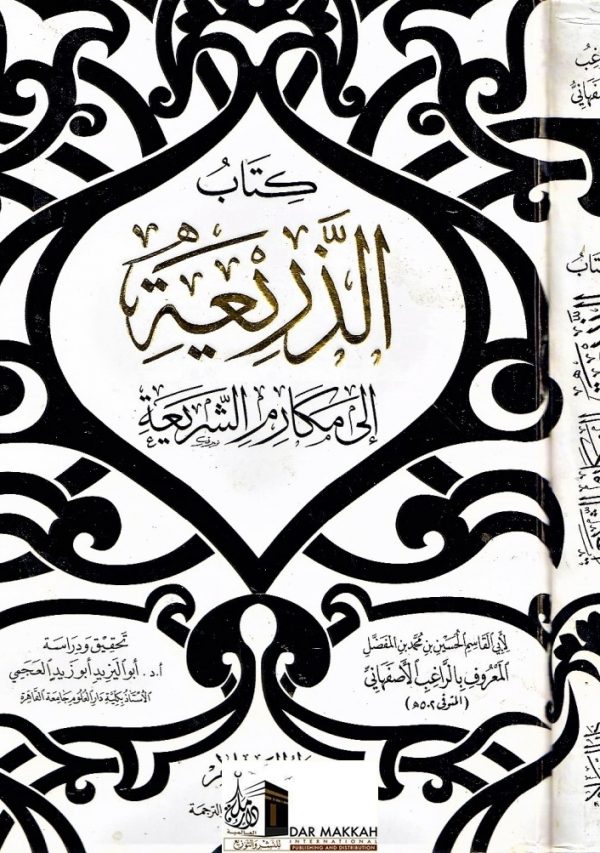 كِتَابُ
الذَّرِيعَةِ
إلى مكارم الشريعة
لأبي القاسم الحسين بن محمد بن المفضل
المعروف بالراغب الأصفهاني
(المتوفى ٥٠٢ هـ)
تحقيق ودراسة
أ.د. أبو اليزيد أبو زيد العجمي
الأستاذ بكلية دار العلوم جامعة القاهرة
العالمية
للنشر والتوزيع
DAR MAKKAH
INTERNATIONAL
PUBLISHING AND DISTRIBUTION
الترجمة